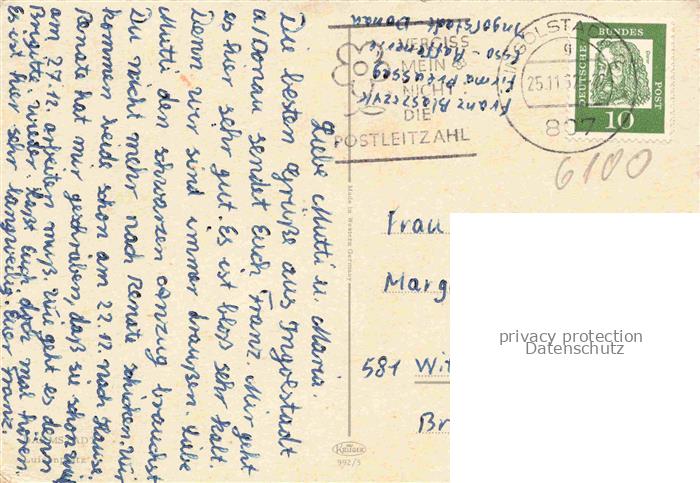 Liebe Mutti u. Maria.
Die besten Grüße aus Ingolstadt
a/Donau sendet Euch Franz. Mir geht
es hier sehr gut. Es ist bloß sehr kalt.
Denn wir sind immer draußen. Liebe
Mutti den schwarzen Anzug brauchst
Du nicht mehr nach Renate schicken. Wir
kommen beide schon am 22.12. nach Hause.
Renate hat mir geschrieben, daß sie schon
am 27.12. arbeiten muß. Wie geht es denn
Brigitte wieder. Laßt Euch doch mal hören.
Es ist hier sehr langweilig. Euer Franz.
Franz Blaszczyk
Firma
Esso - Raffinerie
Ingolstadt Donau
VERGISS
MEIN
NICHT
DIE
POSTLEITZAHL
INGOLSTADT
g
25.11.6
807
DEUTSCHE BUNDESPOST
Dürer
10
6100
Frau
Marg
581 Wit
Br
privacy protection
Datenschutz
Made in Western Germany
KRÜGER
992/5
DARMSTADT
Luisenplatz